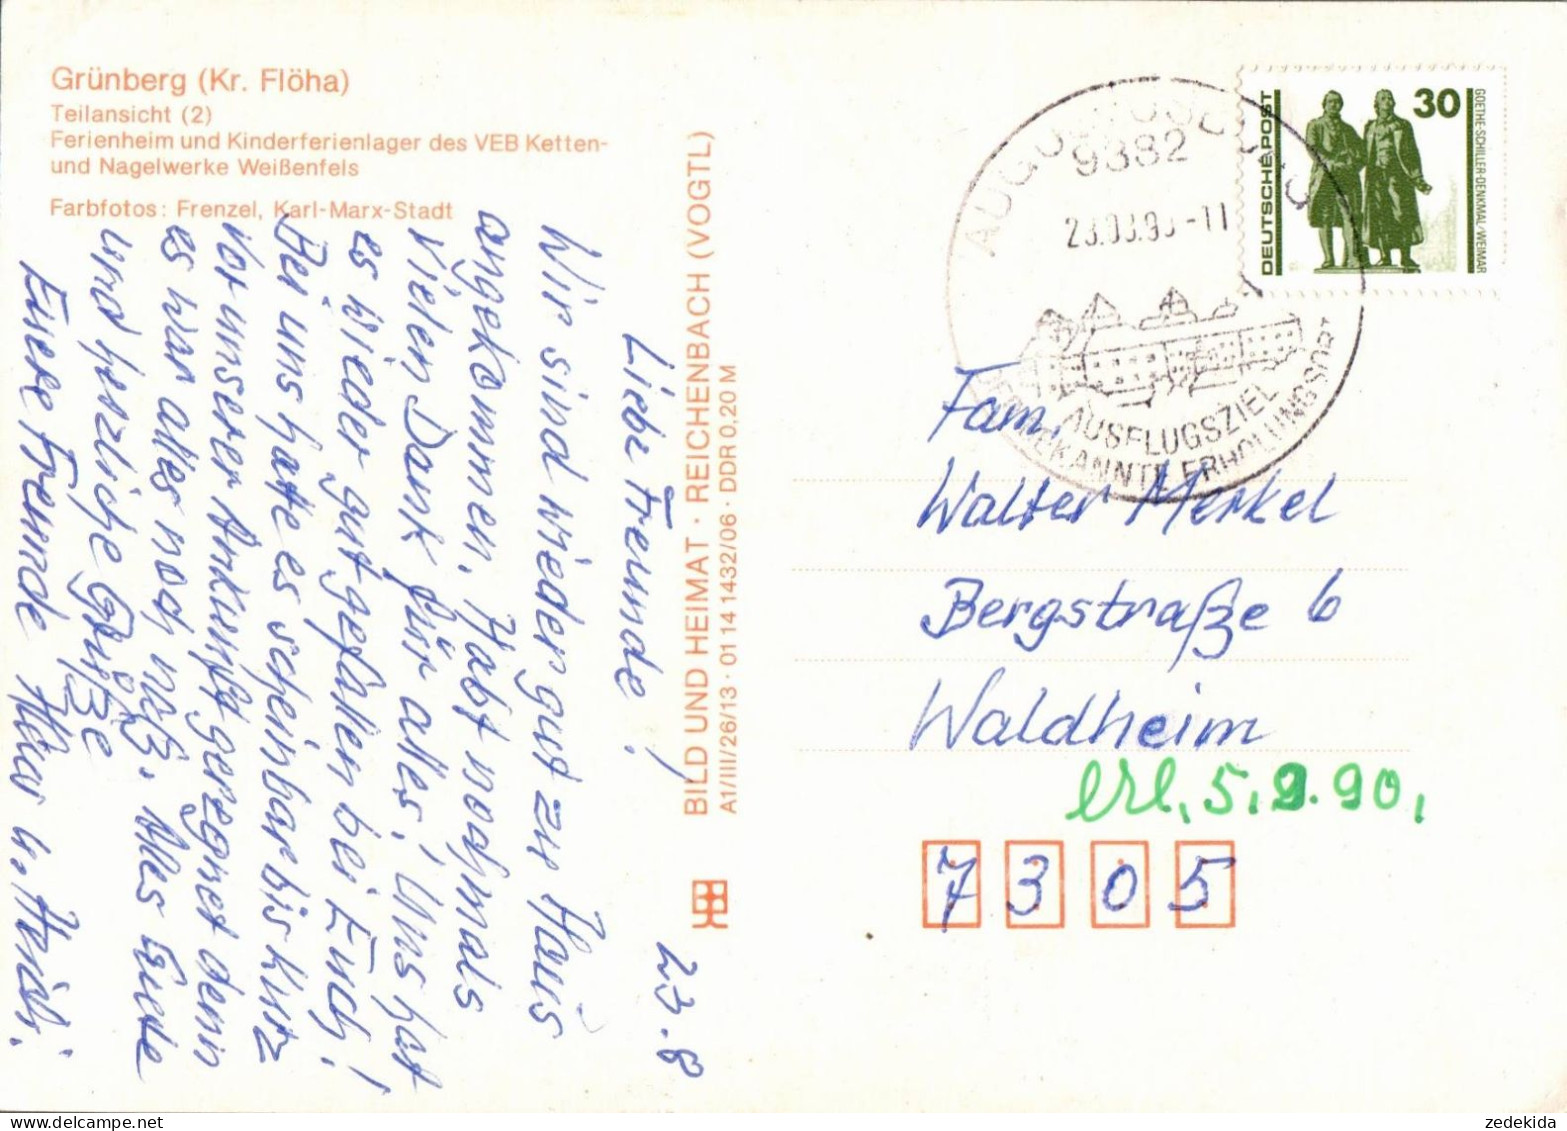 Grünberg (Kr. Flöha)
Teilansicht (2)
Ferienheim und Kinderferienlager des VEB Ketten-
und Nagelwerke Weißenfels
Farbfotos: Frenzel, Karl-Marx-Stadt
23.8
Liebe Freunde!
Wir sind wieder gut zu Haus
angekommen. Habt nochmals
vielen Dank für alles! Uns hat
es wieder gut gefallen bei Euch!
Bei uns hatte es scheinbar bis kurz
vor unserer Ankunft geregnet denn
es war alles noch naß. Alles Gute
und herzliche Grüße
Eure Freunde
BILD UND HEIMAT · REICHENBACH (VOGTL)
A1/III/26/13 · 01 14 1432/06 · DDR 0,20 M
9382
-11
AUSFLUGSZIEL
ERHOLUNGSORT
DEUTSCHE POST
30
GOETHE-SCHILLER-DENKMAL/WEIMAR
Fam.
Walter Merkel
Bergstraße 6
Waldheim
erl. 5.9.90.
7305
zedekida